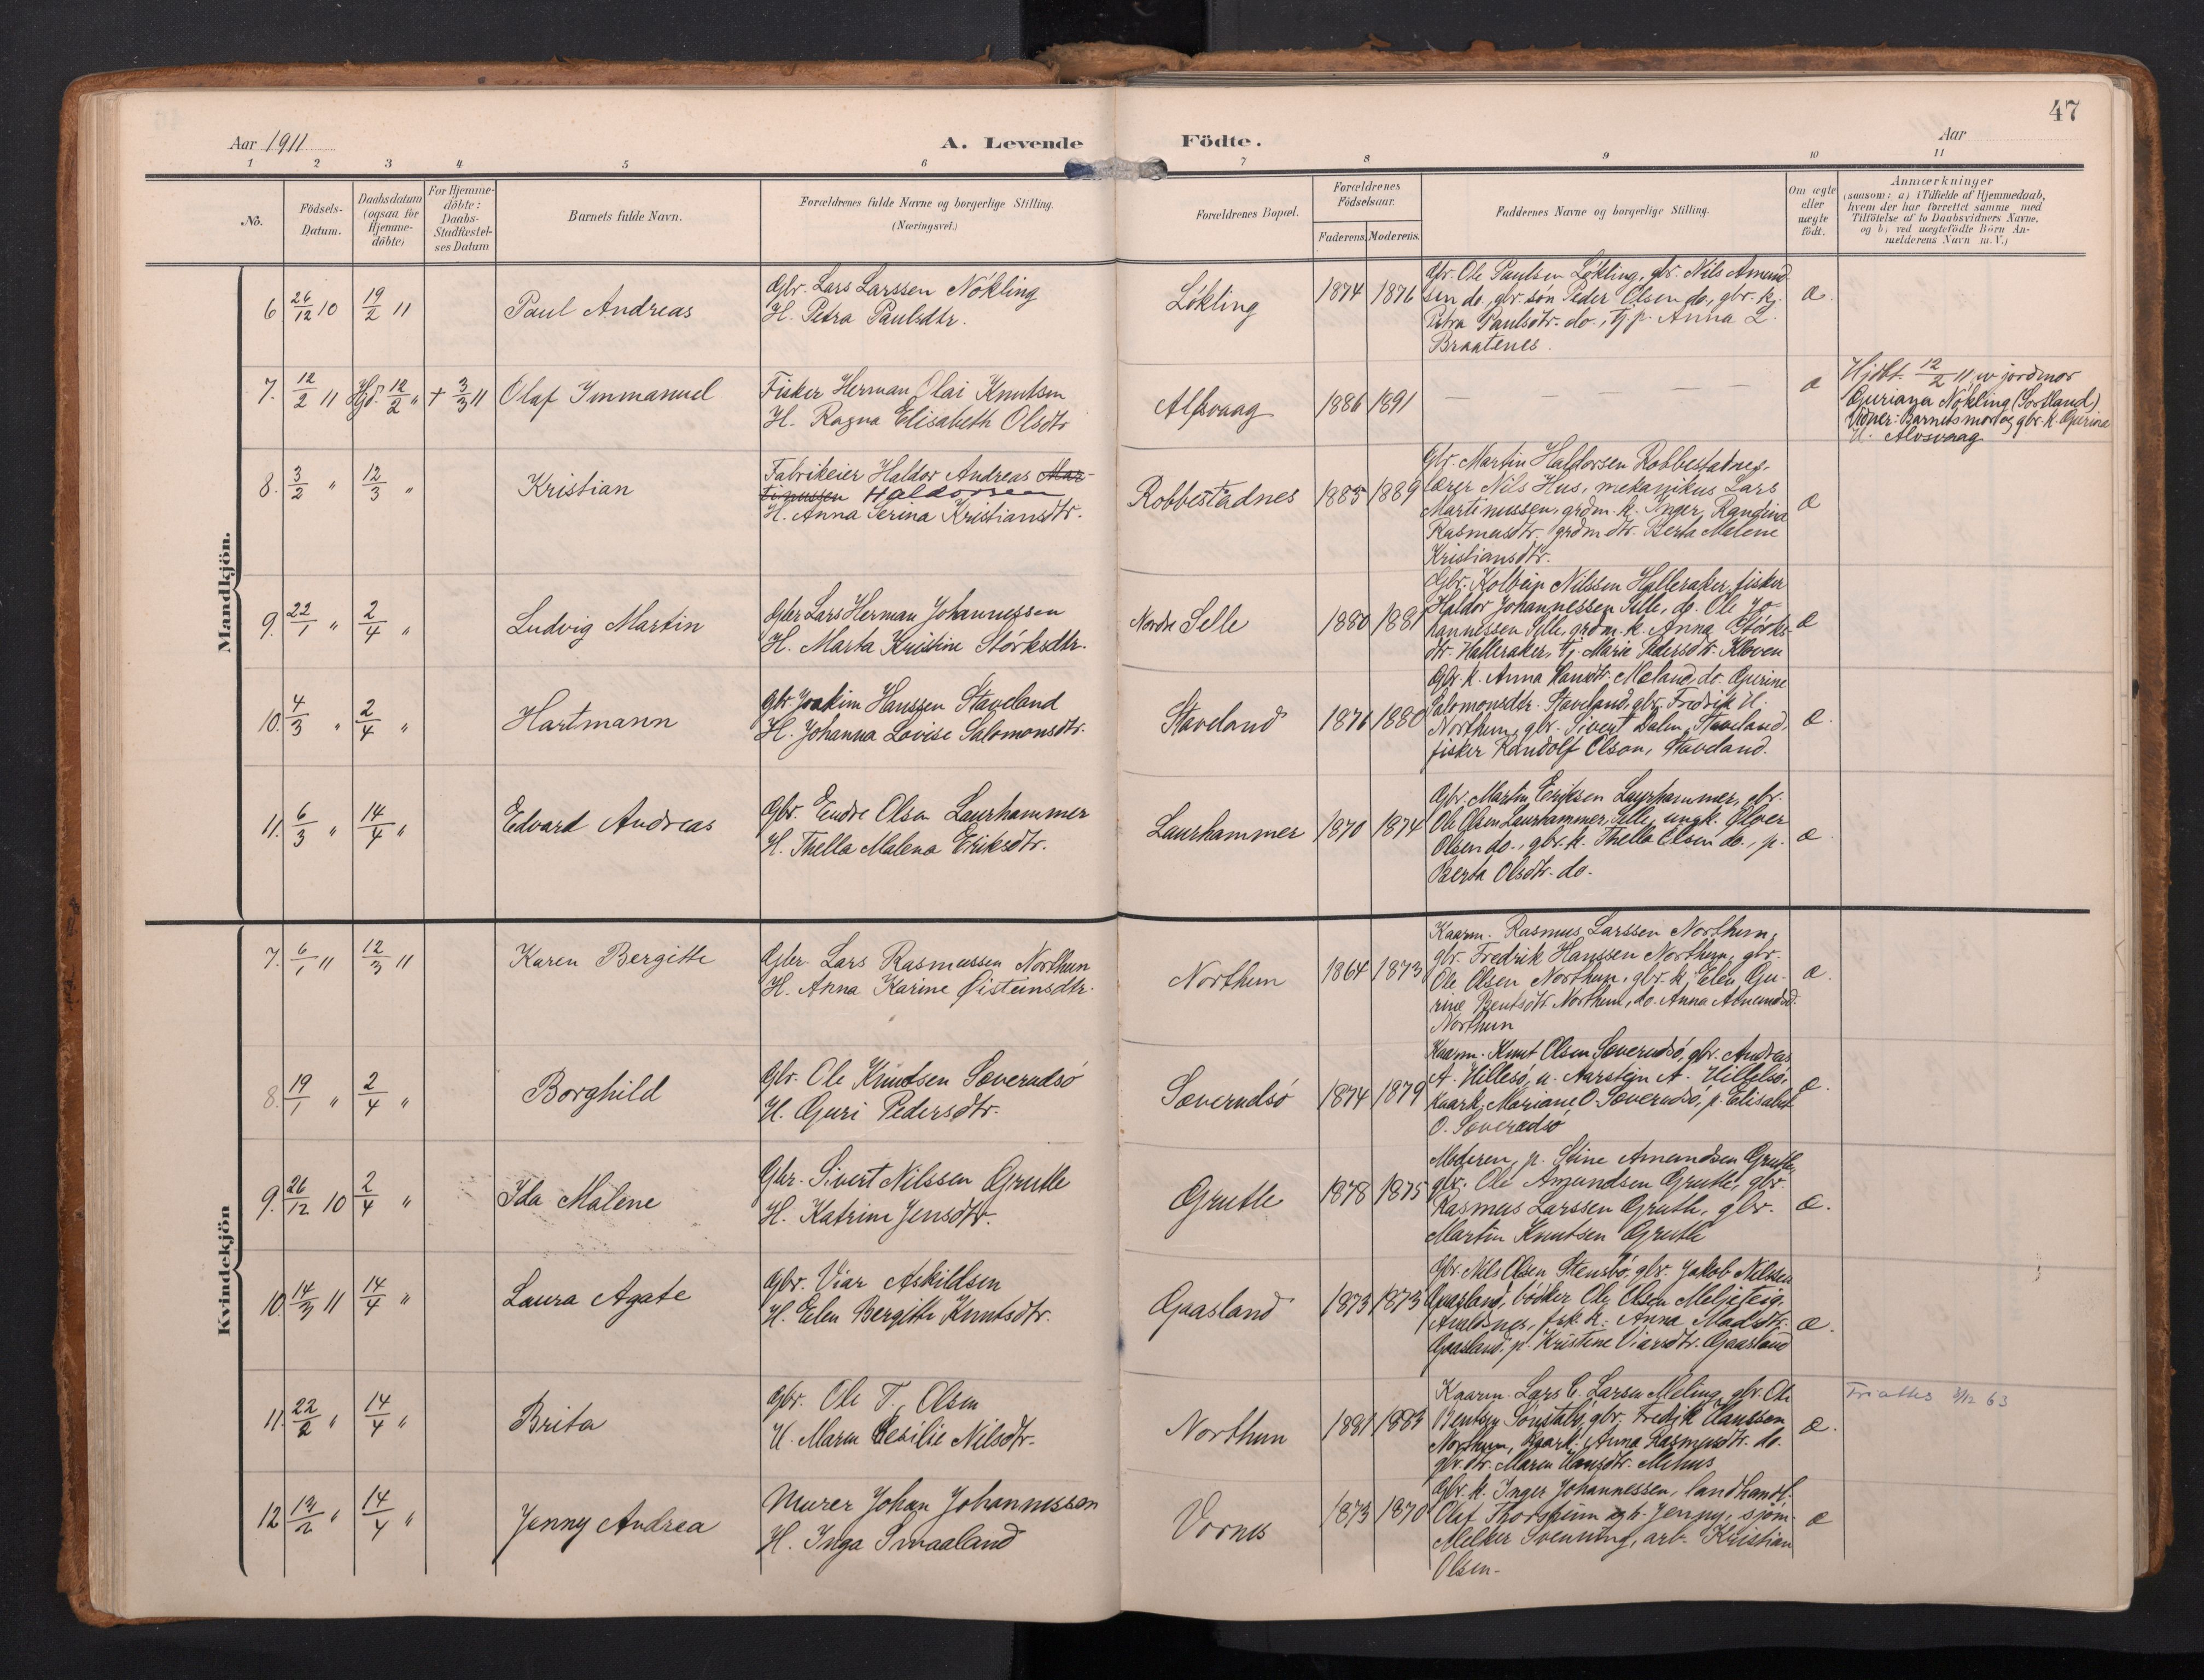 47
Aar 1911
A. Levende
Födte.
Aar
1 2 3 4 5 6 7 8 9 10 11
No.
Födsels-
Datum.
Daabsdatum
(ogsaa for
Hjemme-
döbte)
For Hjemme-
döbte:
Daabs-
Stadfæstel-
ses Datum
Barnets fulde Navn.
Forældrenes fulde Navne og borgerlige Stilling.
(Næringsvei.)
Forældrenes Bopæl.
Forældrenes
Födselsaar.
Faderens. Moderens.
Faddernes Navne og borgerlige Stilling.
Om ægte
eller
uægte
födt.
Anmærkninger
(saasom: a) i Tilfælde af Hjemmedaab,
hvem der har forrettet samme med
Tilföielse af to Daabsvidners Navne.
og b) ved uægtefödte Börn An-
melderens Navn m. V.)
Mandkjön.
6 26/12 10 19/2 11 Paul Andreas
Gbr. Lars Larssen Nökling
H. Petra Paulsdtr.
Lökling 1874 1876
Gbr. Ole Paulsen Lökling, gbr. Nils Amund
sen do., gbr. sön Peder Olsen do., gbr. k.
Petra Paulsdtr. do., tj. p. Anna L.
Braatenes.
æ.
7. 12/2 11 Hjd. 12/2 " + 3/3 11 Olaf Immanuel
Fisker Herman Olai Knutsen
H. Ragna Elisabeth Olsdtr
Alfsvaag 1886 1891
— — — —
æ
Hjdbt. 12/2 11, av jordmor
Guriana Nökling (Sortland)
Vidner: Barnets mor og gbr. k. Gurina
H. Alvsvaag
8. 3/2 " 12/3 " Kristian
Fabrikeier Haldor Andreas Mar-
tinussen Haldorsen
H. Anna Serina Kristiansdtr.
Robbestadnes 1885 1889
Gbr. Martin Haldorsen Robbestadnes,
lærer Nils Hus, mekanikus Lars
Martinussen, grdm. k. Inger Rangdina
Rasmusdtr. grdm dtr. Berta Malene
Kristiansdtr.
æ
9. 22/1 " 2/4 " Ludvig Martin
Gbr Lars Herman Johannessen
H. Marta Kristine Störksdtr.
Nordre Selle 1880 1881
Gbr. Kolbein Nilssen Halleraker, fisker
Haldor Johannessen Selle, do. Ole Jo-
hannessen Selle, grdm. k. Anna Störks-
dtr. Halleraker, tj. Marie Pedersdtr. Kloven
æ
10. 4/3 " 2/4 " Hartmann
Gbr. Joakim Hanssen Staveland
H. Johanna Lovise Salomonsdtr.
Staveland 1876 1880
Gbr. k. Anna Hansdtr. Meland, do. Gurine
Salomonsdtr. Staveland, gbr. Fredrik H.
Northun, gbr. Sivert Dalen Staveland,
fisker Randolf Olson, Staveland.
æ.
11. 6/3 " 14/4 " Edvard Andreas
Gbr. Endre Olsen Laurhammer
H. Thella Malena Eriksdtr.
Laurhammer 1870 1874
Gbr. Martin Eriksen Laurhammer, gbr.
Ole Olsen Laurhammer, Selle, ungk. Oliver
Olsen do., gbr. k. Thella Olsen do., p.
Berta Olsdtr. do.
æ
Kvindekjön
7. 6/1 11 12/3 11 Karen Bergitte
Gbr. Lars Rasmussen Northun
H. Anna Karine Öisteinsdtr.
Northun 1864 1873
Kaarm. Rasmus Larssen Northun,
gbr. Fredrik Hanssen Northun, gbr.
Ole Olsen Northun, gbr. k. Elen Gu-
rine Bentsdtr Northun, do. Anna
Northun
æ.
8. 19/1 " 2/4 " Borghild
Gbr. Ole Knudsen Sæverudsö
H. Guri Pedersdtr.
Sæverudsö 1874 1879
Kaarm. Knut Olsen Sæverudsö, gbr. Andreas
A. Hillesö, u. Aarstein A. Hillesö,
Kaark. Mariane O. Sæverudsö, p. Elisabet
O. Sæverudsö
æ.
9. 26/12 10 2/4 " Ida Malene
Gbr. Sivert Nilssen Grutle
H. Katrine Jensdtr.
Grutle 1878 1875
Moderen, p. Stine Amundsen Grutle,
gbr. Ole Amundsen Grutle, gbr.
Rasmus Larssen Grutle, gbr.
Martin Knutsen Grutle
æ.
10 14/3 11 14/4 " Laura Agate
Gbr. Viar Askildsen
H. Elen Bergitte Knutsdtr.
Gaasland 1873 1873
Gbr. Nils Olsen Stensbö, gbr. Jakob Nilssen
Gaasland, bödker Ole Olsen Meljeteig,
fsk. k. Anna Madsdtr.
Gaasland, p. Kristine Viarsdtr. Gaasland
æ.
11. 22/2 " 14/4 " Brita
Gbr. Ole T. Olsen
H. Maren Cesilie Nilsdtr.
Northun 1881 1883
Kaarm. Lars C. Larsen Meling, gbr. Ole
Bentsen Sönstabö, gbr. Fredrik Hanssen
Northun, kaark. Anna Rasmusdtr. do.
gbr. dtr. Maren Hansdtr. Mehus
æ.
Friattes 3/12 63
12 13/2 " 14/4 " Jenny Andrea
Murer Johan Johannessen
H. Inga Smaaland
Vornes 1873 1870
Gbr. k. Inger Johannessen, landhandl.
Olaf Thorsheim og h. Jenny, sjöm.
Melker Svenning, arb. Kristian
Olsen.
æ